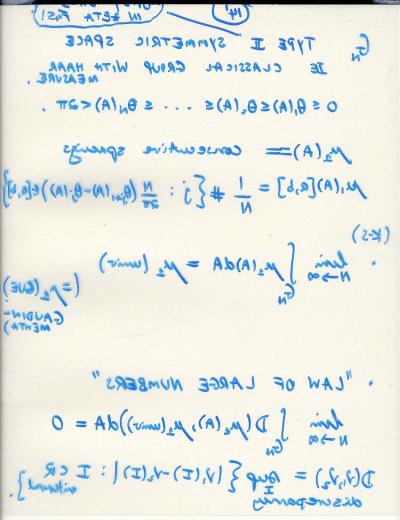 (14)
IN ZETA FNS!
G_N TYPE II SYMMETRIC SPACE
IE CLASSICAL GROUP WITH HAAR MEASURE.
0 ≤ θ₁(A) ≤ θ₂(A) ≤ ... ≤ θ_N(A) < 2π.
μ₂(A) = consecutive spacings
μ₁(A)[a,b] = 1/N # { j : N/2π (θ_{j+1}(A) - θ_j(A)) ∈ [a,b] }
(K-S)
• lim_{N→∞} ∫_{G_N} μ₂(A) dA = μ₂(univ) (= μ₂(GUE)
GAUDIN-
MEHTA)
• "LAW OF LARGE NUMBERS"
lim_{N→∞} ∫_{G_N} D(μ₂(A), μ₂(univ)) dA = 0
D(ν₁, ν₂) = sup_I { |ν₁(I) - ν₂(I)| : I ⊂ ℝ interval }.
discrepancy